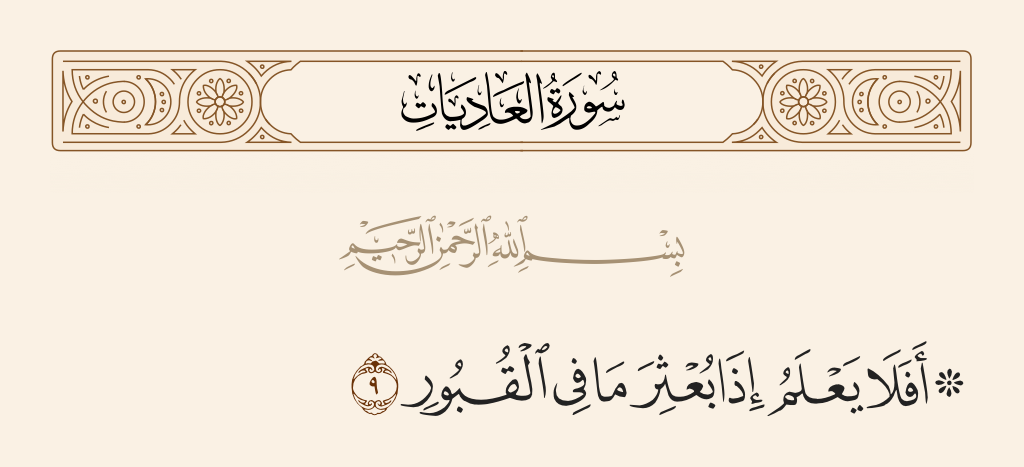 سُورَةُ العَادِيَاتِ
بِسْمِ ٱللَّهِ ٱلرَّحْمَٰنِ ٱلرَّحِيمِ
۞ أَفَلَا يَعْلَمُ إِذَا بُعْثِرَ مَا فِى ٱلْقُبُورِ ٩